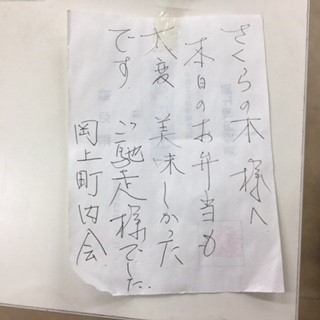 さくらの木様へ
本日のお弁当も
大変美味しかった
です
ご馳走様でした
岡上町内会